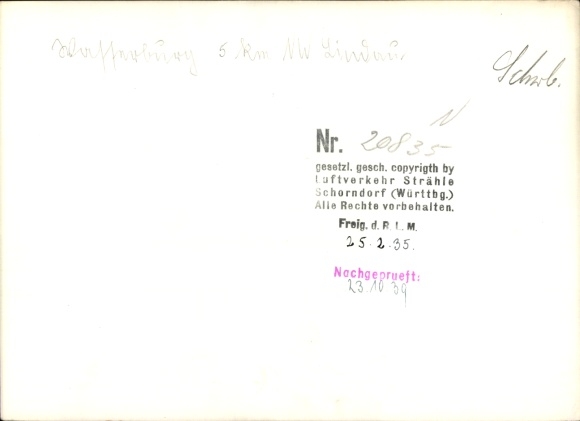 Wasserburg 5 km NW Lindau
Schrb.
N
Nr. 20835
gesetzl. gesch. copyrigth by
Luftverkehr Strähle
Schorndorf (Württbg.)
Alle Rechte vorbehalten.
Freig. d. R. L. M.
25.2.35.
Nachgeprueft:
23.10 39